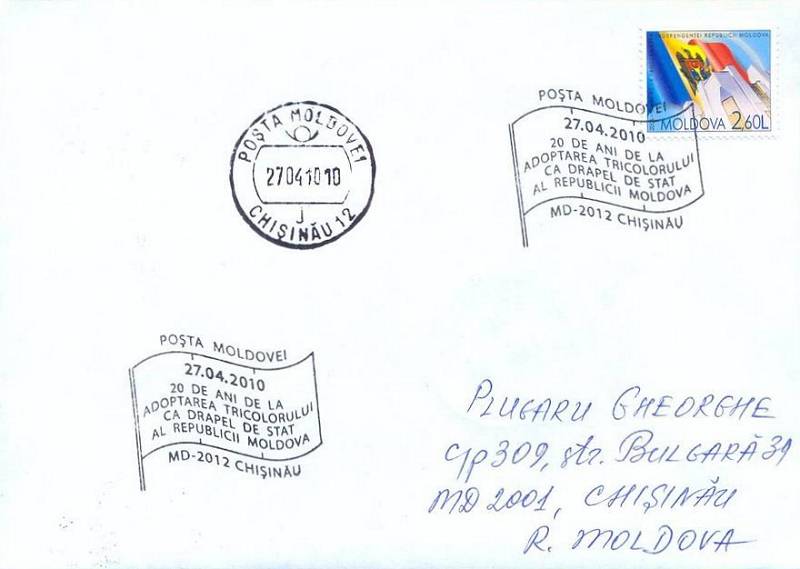 INDEPENDENȚEI REPUBLICII MOLDOVA
MOLDOVA 2,60L
POȘTA MOLDOVEI
27.04.2010
20 DE ANI DE LA
ADOPTAREA TRICOLORULUI
CA DRAPEL DE STAT
AL REPUBLICII MOLDOVA
MD-2012 CHIȘINĂU
POȘTA MOLDOVEI
27041010
J
CHIȘINĂU 12
POȘTA MOLDOVEI
27.04.2010
20 DE ANI DE LA
ADOPTAREA TRICOLORULUI
CA DRAPEL DE STAT
AL REPUBLICII MOLDOVA
MD-2012 CHIȘINĂU
PLUGARU GHEORGHE
309, str. BULGARĂ 39
MD 2001, CHIȘINĂU
R. MOLDOVA